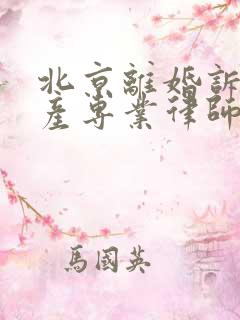 北京離婚訴
產專業律師
馬國英